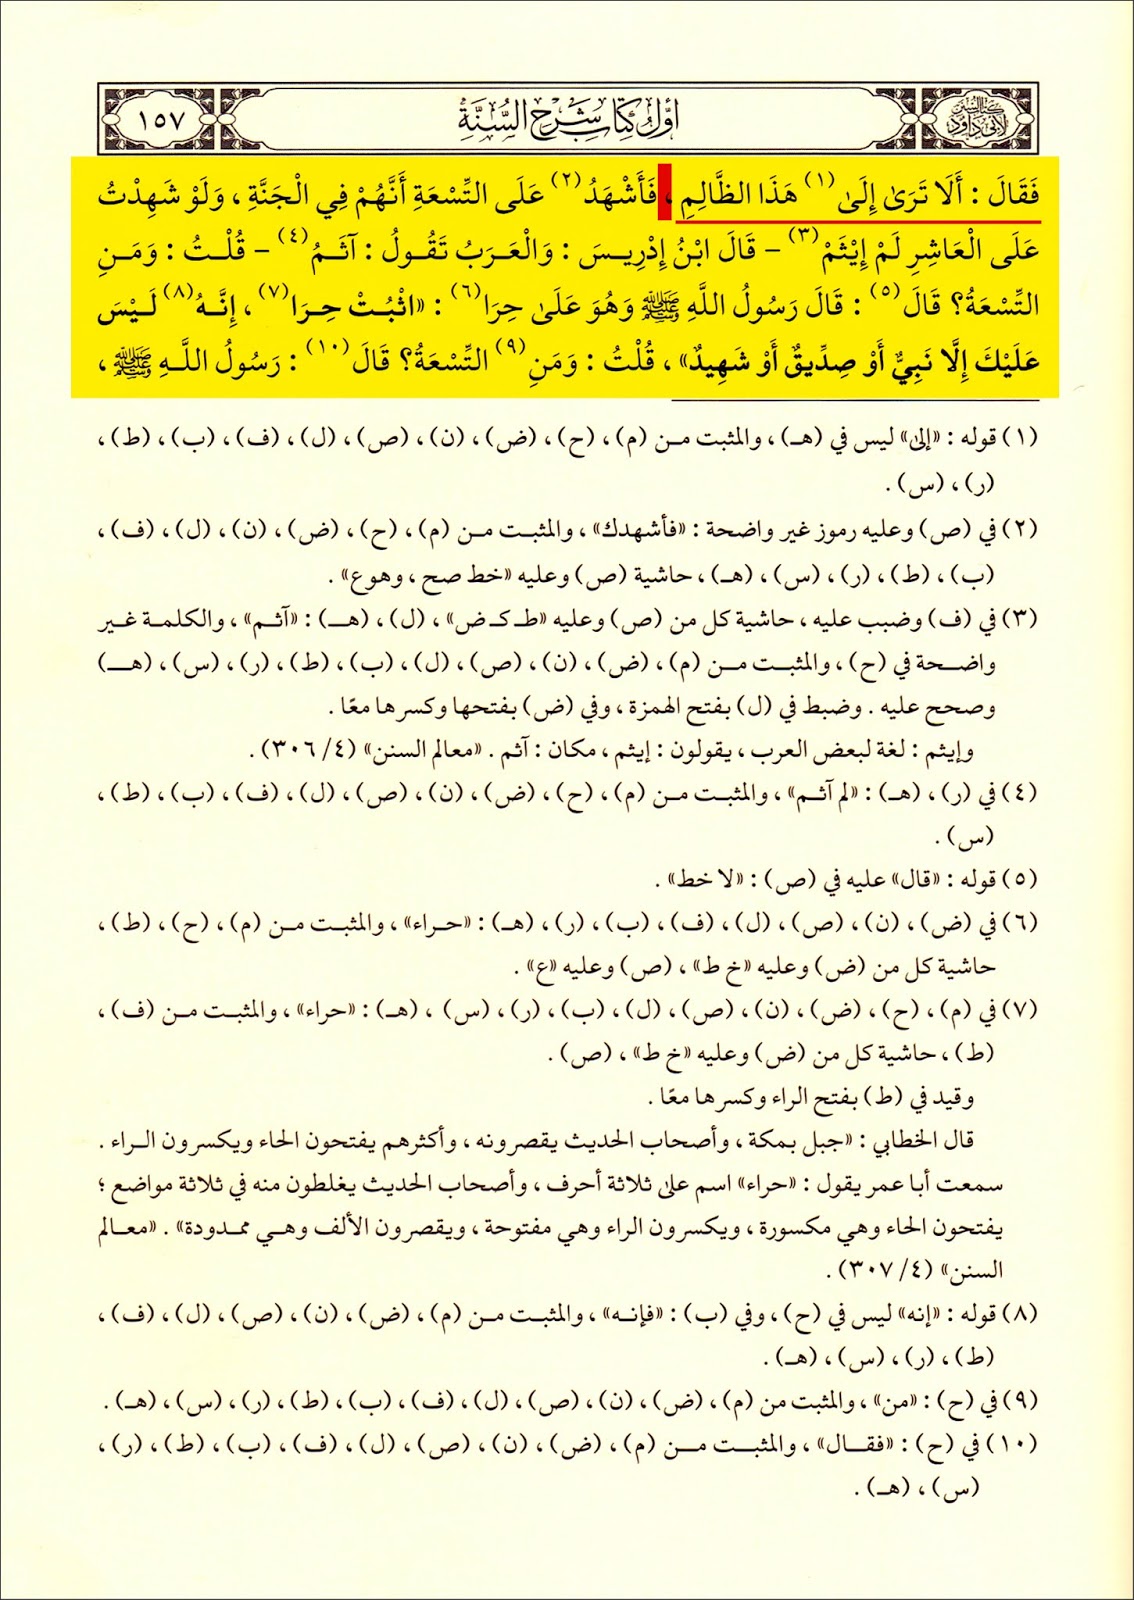 كتاب السنن لأبي داود
أول كتاب شرح السُّنَّة
١٥٧
فَقَالَ : أَلَا تَرَىٰ إِلَىٰ(١) هَذَا الظَّالِمِ ، فَأَشْهَدُ(٢) عَلَى التِّسْعَةِ أَنَّهُمْ فِي الْجَنَّةِ ، وَلَوْ شَهِدْتُ
عَلَى الْعَاشِرِ لَمْ إِيْثَمْ(٣) - قَالَ ابْنُ إِدْرِيسَ : وَالْعَرَبُ تَقُولُ : آثَمُ(٤) - قُلْتُ : وَمَنِ
التِّسْعَةُ؟ قَالَ(٥) : قَالَ رَسُولُ اللَّهِ ﷺ وَهُوَ عَلَىٰ حِرَا(٦) : «اثْبُتْ حِرَا(٧) ، إِنَّهُ(٨) لَيْسَ
عَلَيْكَ إِلَّا نَبِيٌّ أَوْ صِدِّيقٌ أَوْ شَهِيدٌ» ، قُلْتُ : وَمَنِ(٩) التِّسْعَةُ؟ قَالَ(١٠) : رَسُولُ اللَّهِ ﷺ ،
(١) قوله : «إلى» ليس في (هـ) ، والمثبت من (م) ، (ح) ، (ض) ، (ن) ، (ص) ، (ل) ، (ف) ، (ب) ، (ط) ،
(ر) ، (س) .
(٢) في (ص) وعليه رموز غير واضحة : «فأشهدك» ، والمثبت من (م) ، (ح) ، (ض) ، (ن) ، (ل) ، (ف) ،
(ب) ، (ط) ، (ر) ، (س) ، (هـ) ، حاشية (ص) وعليه «خط صح ، وهوع» .
(٣) في (ف) وضبب عليه ، حاشية كل من (ص) وعليه «طـ كـ ض» ، (ل) ، (هـ) : «آثم» ، والكلمة غير
واضحة في (ح) ، والمثبت من (م) ، (ض) ، (ن) ، (ص) ، (ل) ، (ب) ، (ط) ، (ر) ، (س) ، (هـ)
وصحح عليه . وضبط في (ل) بفتح الهمزة ، وفي (ض) بفتحها وكسرها معًا .
وإيثم : لغة لبعض العرب ، يقولون : إيثم ، مكان : آثم . «معالم السنن» (٤/ ٣٠٦) .
(٤) في (ر) ، (هـ) : «لم آثم» ، والمثبت من (م) ، (ح) ، (ض) ، (ن) ، (ص) ، (ل) ، (ف) ، (ب) ، (ط) ،
(س) .
(٥) قوله : «قال» عليه في (ص) : «لا خط» .
(٦) في (ض) ، (ن) ، (ص) ، (ل) ، (ف) ، (ب) ، (ر) ، (هـ) : «حراء» ، والمثبت من (م) ، (ح) ، (ط) ،
حاشية كل من (ض) وعليه «خ ط» ، (ص) وعليه «ع» .
(٧) في (م) ، (ح) ، (ض) ، (ن) ، (ص) ، (ل) ، (ب) ، (ر) ، (س) ، (هـ) : «حراء» ، والمثبت من (ف) ،
(ط) ، حاشية كل من (ض) وعليه «خ ط» ، (ص) .
وقيد في (ط) بفتح الراء وكسرها معًا .
قال الخطابي : «جبل بمكة ، وأصحاب الحديث يقصرونه ، وأكثرهم يفتحون الحاء ويكسرون الراء .
سمعت أبا عمر يقول : «حراء» اسم على ثلاثة أحرف ، وأصحاب الحديث يغلطون منه في ثلاثة مواضع ؛
يفتحون الحاء وهي مكسورة ، ويكسرون الراء وهي مفتوحة ، ويقصرون الألف وهي ممدودة» . «معالم
السنن» (٤/ ٣٠٧) .
(٨) قوله : «إنه» ليس في (ح) ، وفي (ب) : «فإنه» ، والمثبت من (م) ، (ض) ، (ن) ، (ص) ، (ل) ، (ف) ،
(ط) ، (ر) ، (س) ، (هـ) .
(٩) في (ح) : «من» ، والمثبت من (م) ، (ض) ، (ن) ، (ص) ، (ل) ، (ف) ، (ب) ، (ط) ، (ر) ، (س) ، (هـ) .
(١٠) في (ح) : «فقال» ، والمثبت من (م) ، (ض) ، (ن) ، (ص) ، (ل) ، (ف) ، (ب) ، (ط) ، (ر) ،
(س) ، (هـ) .